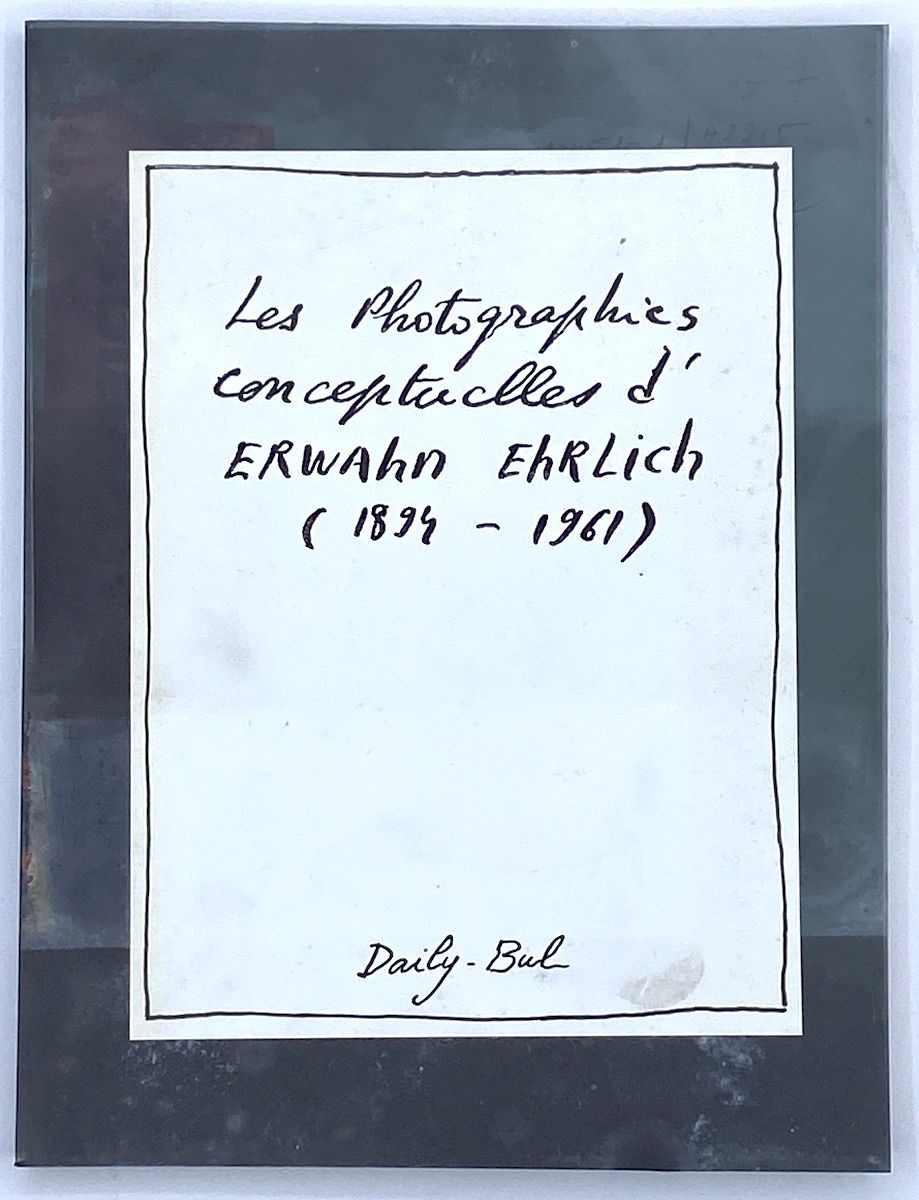 Les Photographies
conceptuelles d'
ERWAhn EhRLich
( 1894 - 1961 )
Daily-Bul